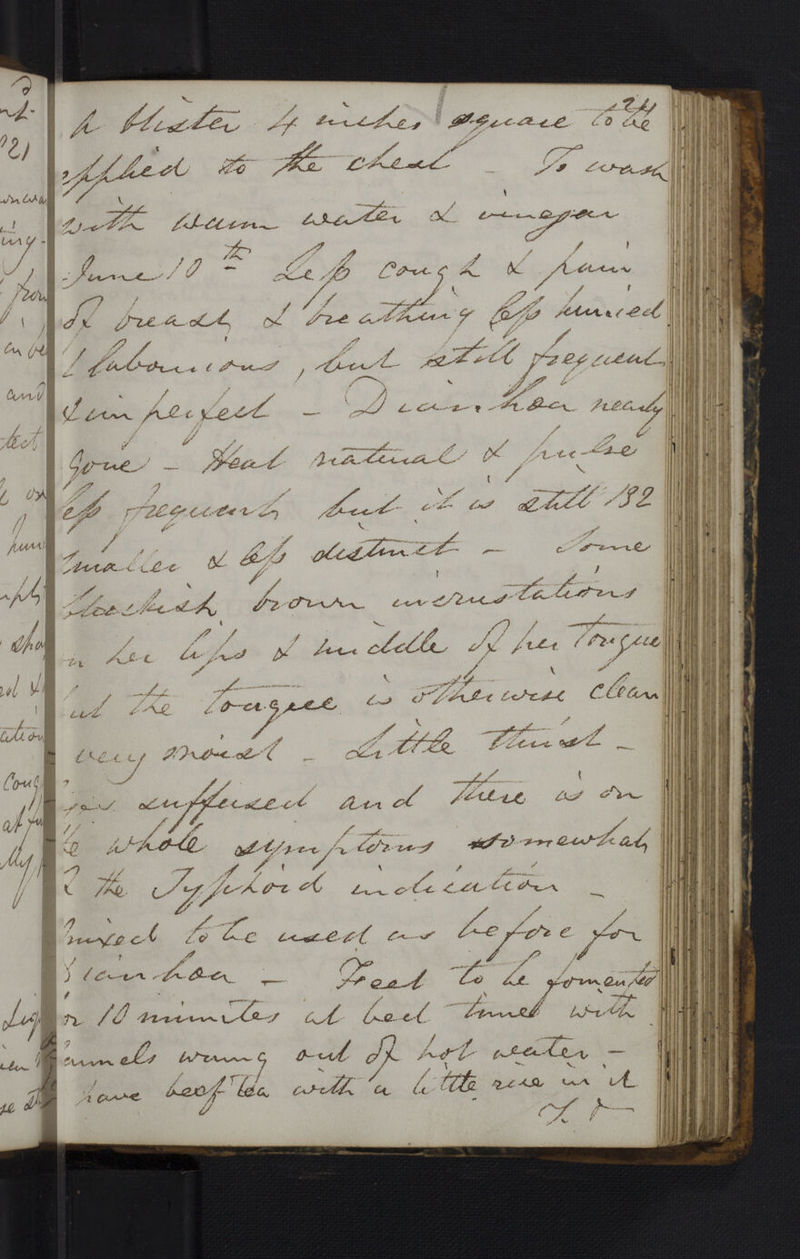 24
A blister 4 inches square to be
applied to the chest - To wash
with warm water & vinegar
June 10th Less cough & pain
of breast, & breathing less hurried
& labourious, but still frequent
& imperfect - Diarrhoea nearly
gone - Heat natural & pulse
less frequent but it is still 132
smaller & less distinct - Some
blackish brown incrustations
on her lips & middle of her tongue
but the tongue is otherwise clean
very moist - Little thirst -
Eyes suffused and there is on
the whole symptoms somewhat
of the Typhoid indication -
mixed to be used as before for
Diarrhoea - Feet to be fomented
for 10 minutes at bed time with
flannels wrung out of hot water -
have beef tea with a little rice in it